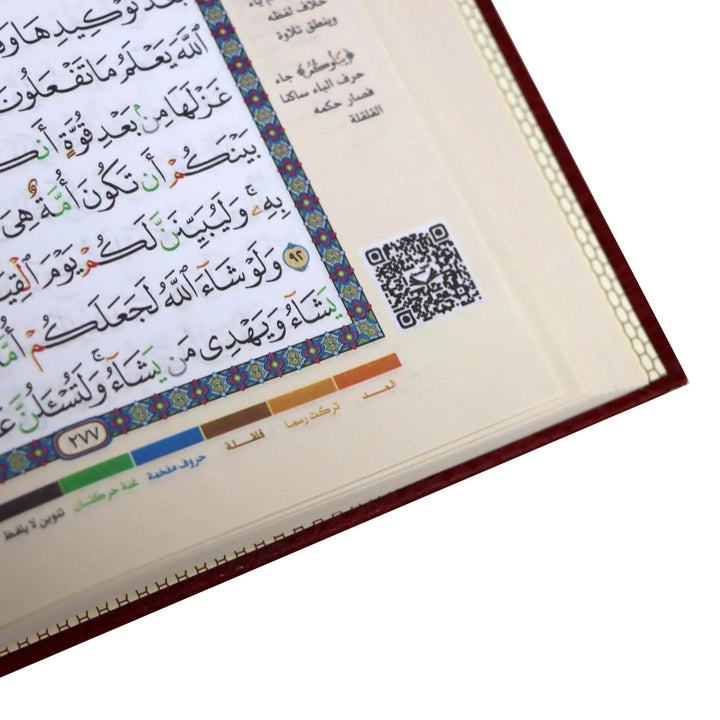 تَوْكِيدِهَا
ٱللَّهَ يَعْلَمُ مَا تَفْعَلُونَ
غَزْلَهَا مِنۢ بَعْدِ قُوَّةٍ أَنك
بَيْنَكُمْ أَن تَكُونَ أُمَّةٌ هِىَ
بِهِۦۚ وَلَيُبَيِّنَنَّ لَكُمْ يَوْمَ ٱلْقِيَ
٩٢ وَلَوْ شَآءَ ٱللَّهُ لَجَعَلَكُمْ أُمَّ
يَشَآءُ وَيَهْدِى مَن يَشَآءُۚ وَلَتُسْـَٔلُنَّ عَ
خلاف لفظه
وينطق تلاوة
جاء
حرف الباء ساكنا
فصار حكمه
القلقلة
٢٧٧
المــد
تركت رسما
قلقلة
حروف مفخمة
غنة حركتـان
تنوين لا يلفظ